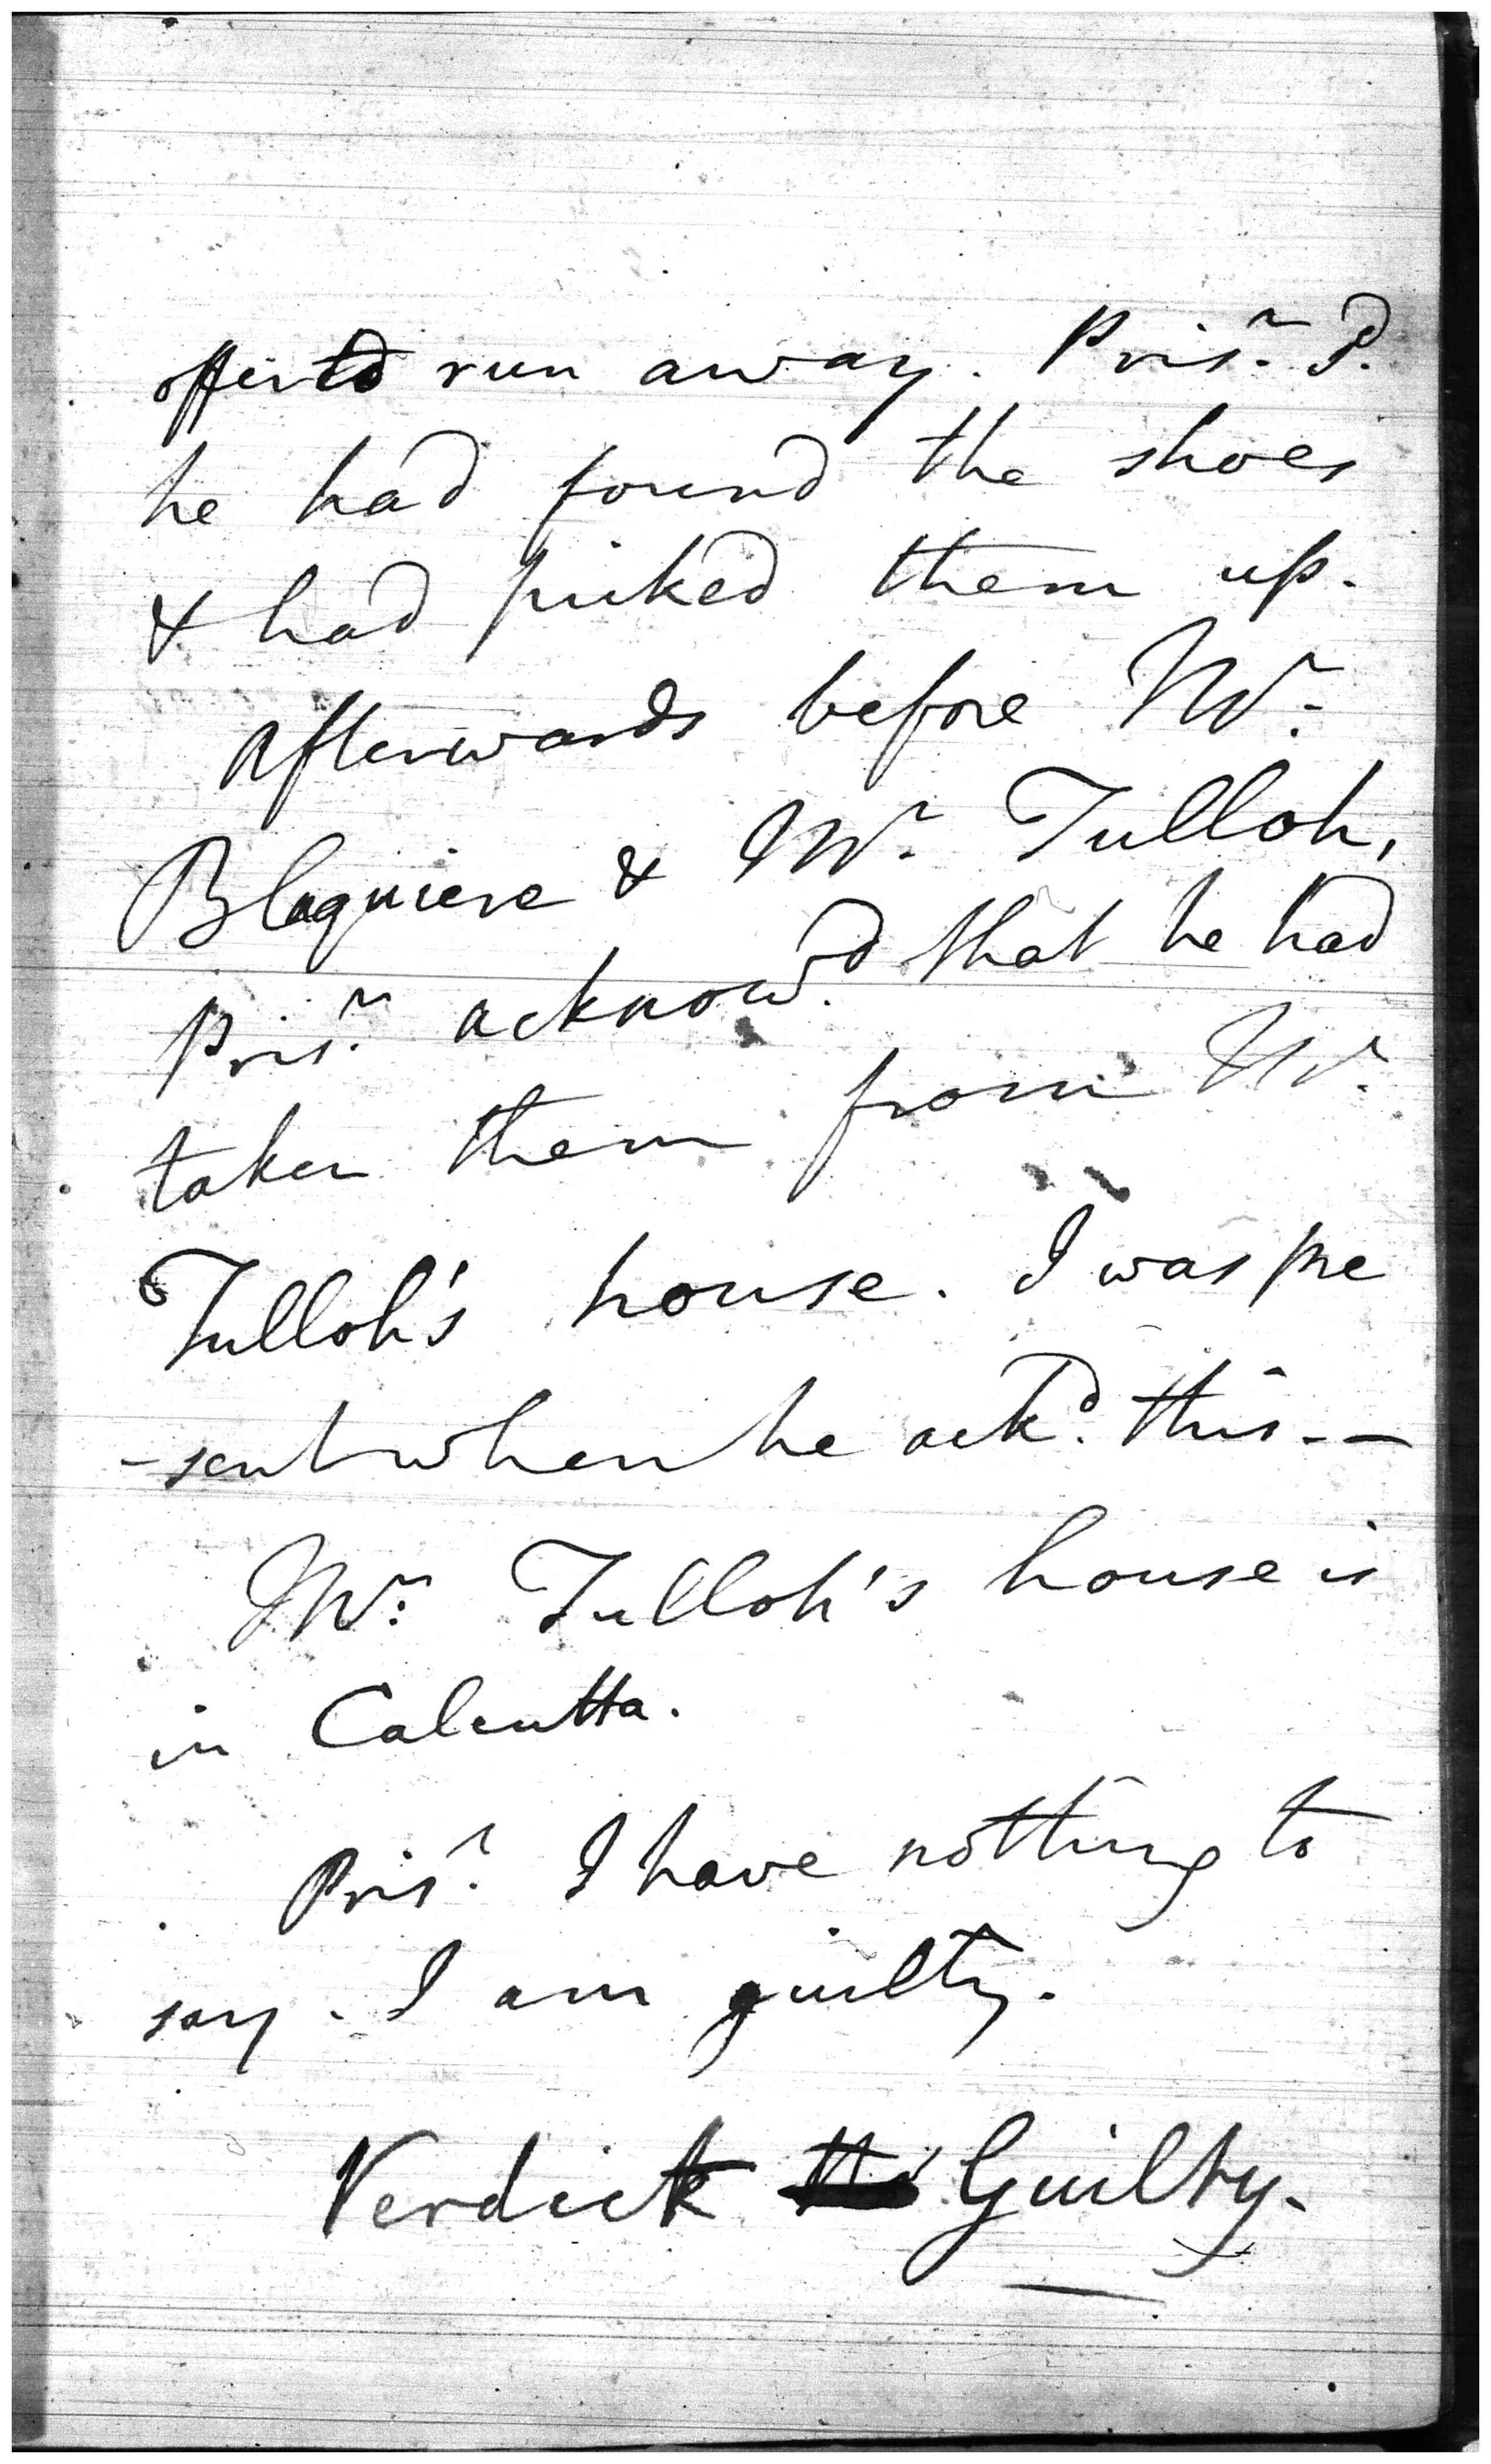 offer to run away. Pris.r S.d
he had found the shoes
& had picked them up.
Afterwards before Mr.
Blaquiere & Mr. Tulloh,
Pris.r acknow.d that he had
taken them from Mr.
Tulloh's house. I was pre
-sent when he ack.d this. —
Mr. Tulloh's house is
in Calcutta.
Pris.r I have nothing to
say. I am guilty.
Verdict Guilty.